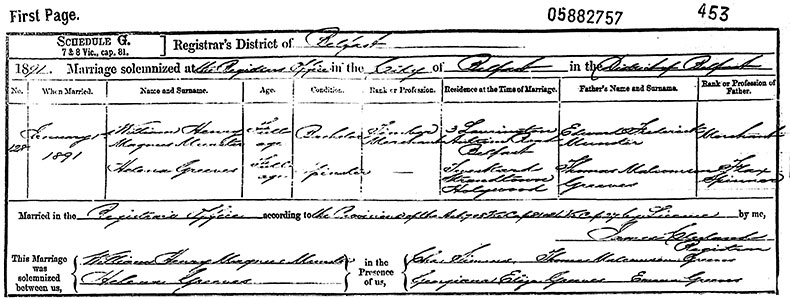 First Page.
05882757
453
SCHEDULE G.
7 & 8 Vic., cap. 81.
Registrar's District of Belfast
1891. Marriage solemnized at the Registrars Office in the City of Belfast in the District of Belfast
No. When Married. Name and Surname. Age. Condition. Rank or Profession. Residence at the Time of Marriage. Father's Name and Surname. Rank or Profession of Father.
128 January 1 William Henry Full Bachelor 3 Edward Frederick Merchant
1891 Magnus Munster age Merchant Munster
Belfast
Helena Greeves Full Spinster Thomas Malcomson Flax
age Strandtown Greeves Spinner
Holywood
Married in the Registrars Office according to the Provisions of the Act by License by me,
James
Registrar
This Marriage was solemnized between us,
William Henry Magnus Munster
Helena Greeves
in the Presence of us,
Thomas Malcomson Greeves
Georgiana Eliza Greeves Emma Greeves